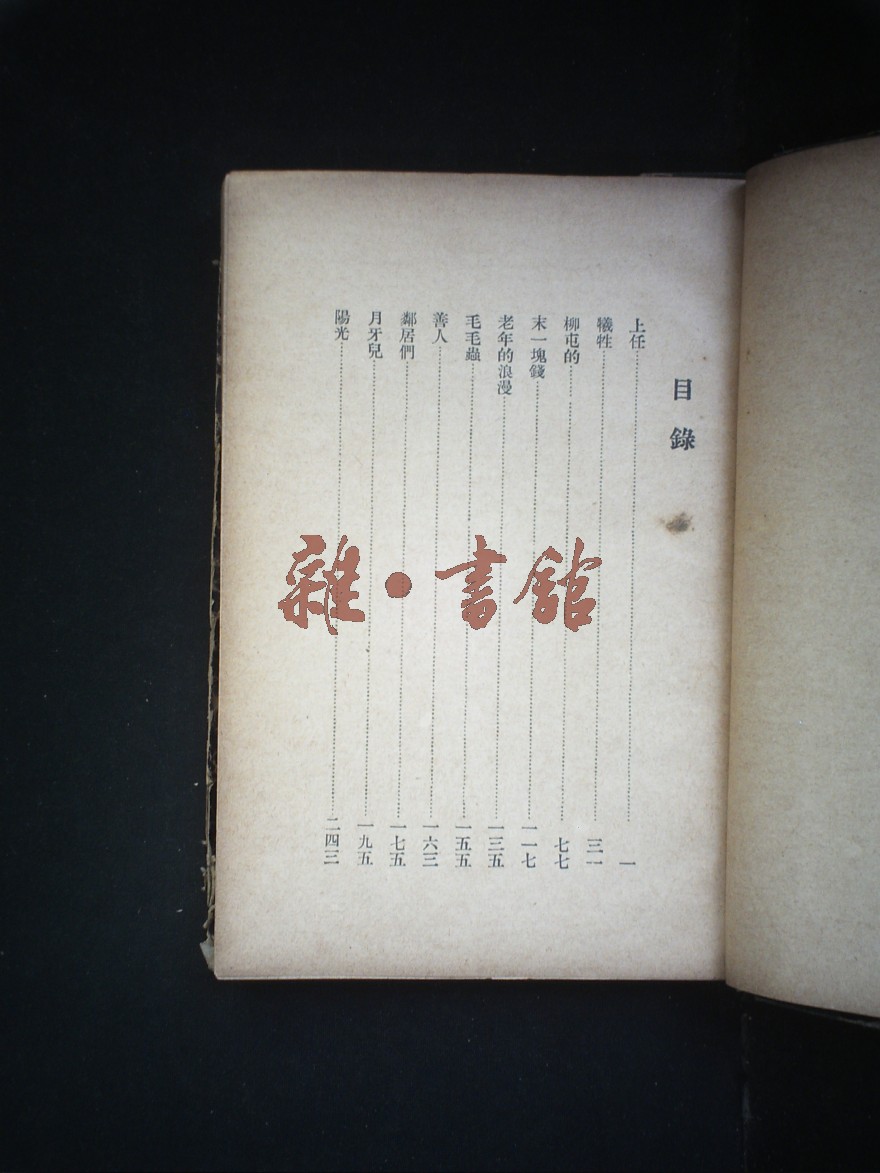 目錄
上任……一
犧牲……三一
柳屯的……七七
末一塊錢……一一七
老年的浪漫……一三五
毛毛蟲……一五五
善人……一六三
鄰居們……一七五
月牙兒……一九五
陽光……二四三
雜·書館